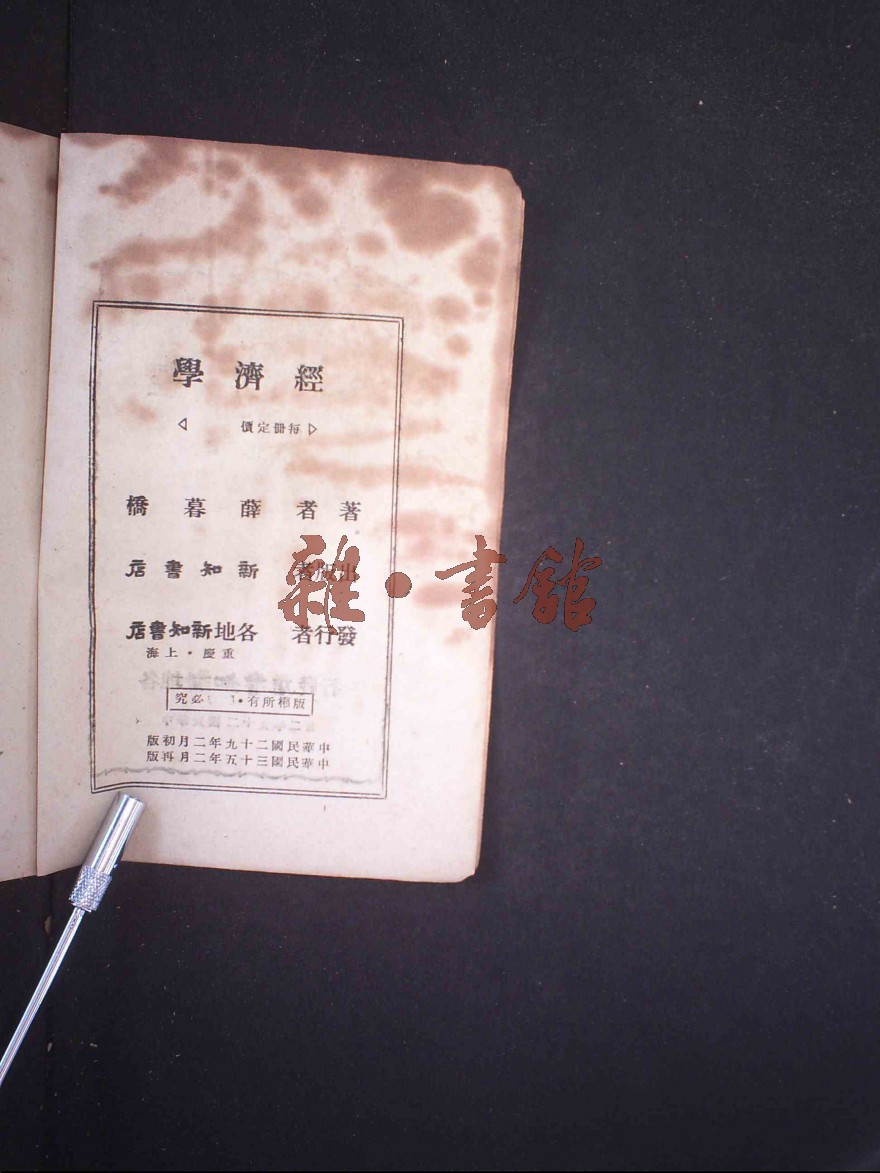 經濟學
▷每冊定價 ◁
著者 薛暮橋
出版者 新知書店
發行者 各地新知書店
重慶・上海
版權所有・必究
中華民國二十九年二月初版
中華民國三十五年二月再版
雜・書館